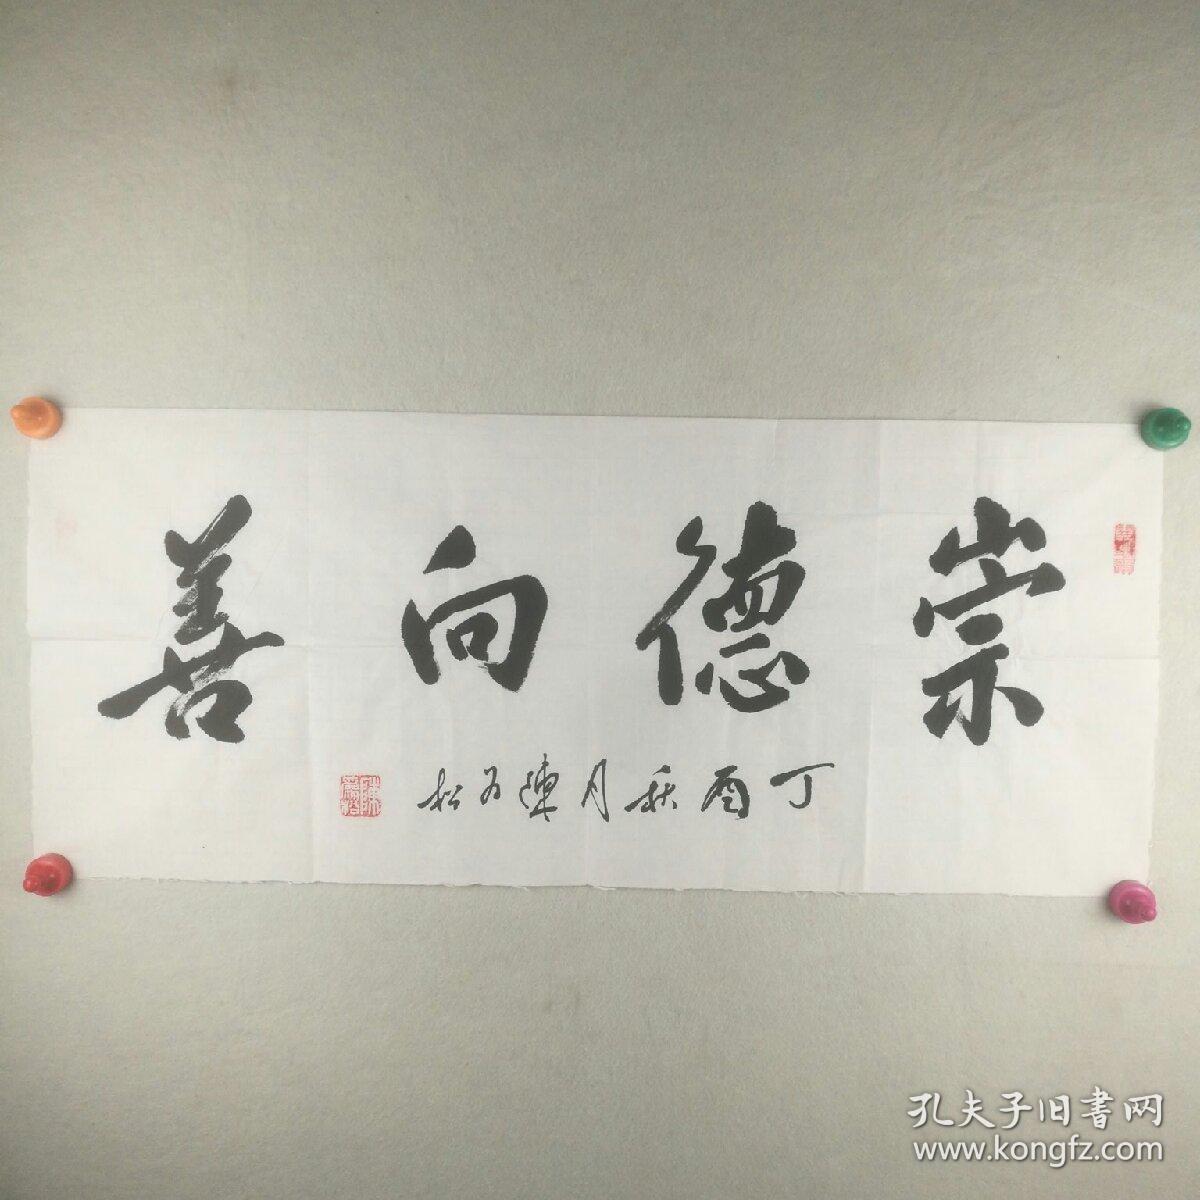 崇德向善
丁酉秋月陳为松
孔夫子旧書网
www.kongfz.com